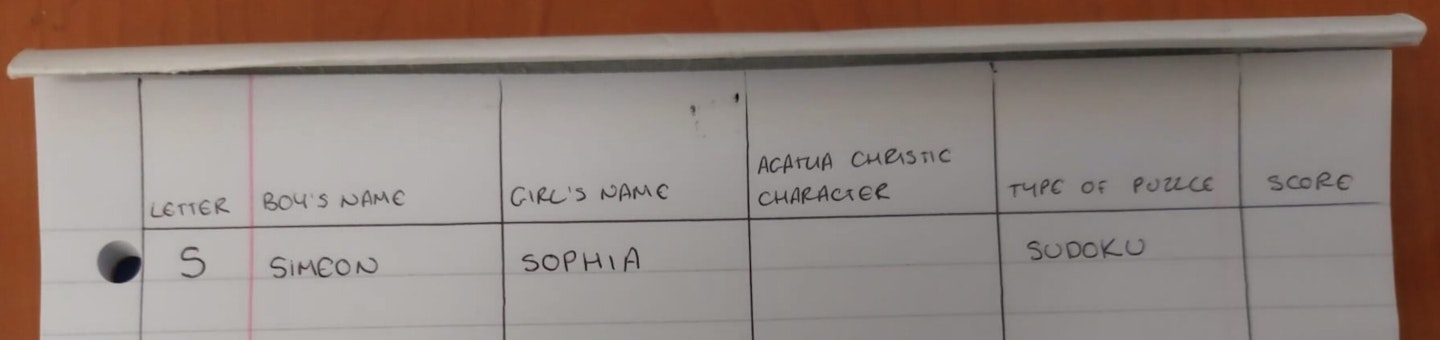 LETTER BOY'S NAME GIRL'S NAME AGATHA CHRISTIE CHARACTER TYPE OF PUZZLE SCORE
S SIMEON SOPHIA SUDOKU